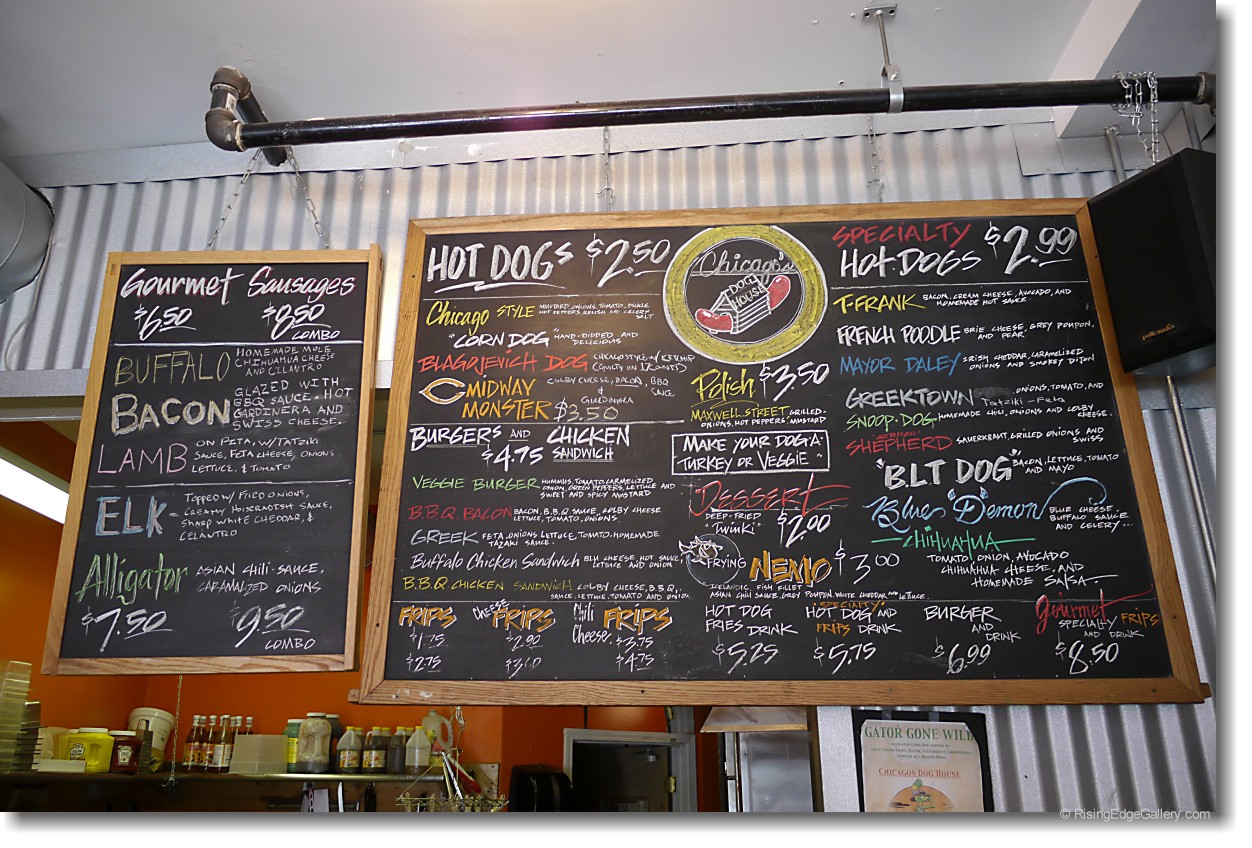 Gourmet Sausages
$6.50 $8.50
COMBO
BUFFALO HOMEMADE MOLE
CHIHUAHUA CHEESE
AND CILANTRO
BACON GLAZED WITH
BBQ SAUCE. HOT
GARDINERA AND
SWISS CHEESE.
LAMB ON PITA, W/TATZIKI
SAUCE, FETA CHEESE, ONIONS
LETTUCE, & TOMATO
ELK- TOPPED W/ FRIED ONIONS,
CREAMY HORSERADISH SAUCE,
SHARP WHITE CHEDDAR, &
CELANTRO
Alligator ASIAN CHILI-SAUCE,
CARAMALIZED ONIONS.
$7.50 $9.50
COMBO
HOT DOGS $2.50
Chicago STYLE MUSTARD, ONIONS, TOMATO, PICKLE
HOT PEPPERS, RELISH AND CELERY
SALT
"CORN DOG" HAND-DIPPED AND
DELICIOUS
BLAGOJEVICH DOG (CHICAGO STYLE W/ KETCHUP
(GUILTY ON 17 COUNTS)
C MIDWAY
MONSTER COLBY CHEESE, BACON, BBQ
SAUCE
&
$3.50
BURGERS AND CHICKEN
SANDWICH
$4.75
VEGGIE BURGER HUMMUS, TOMATO, CARMELIZED
ONION, GREEN PEPPERS, LETTUCE AND
SWEET AND SPICY MUSTARD
B.B.Q. BACON BACON, B.B.Q. SAUCE, COLBY CHEESE
LETTUCE, TOMATO, ONIONS.
GREEK FETA, ONIONS, LETTUCE, TOMATO, HOMEMADE
TAZAKI SAUCE.
Buffalo Chicken Sandwich BLU CHEESE, HOT SAUCE,
LETTUCE AND ONION
B.B.Q CHICKEN SANDWICH COLBY CHEESE, B.B.Q,
SAUCE, LETTUCE, TOMATO AND ONION.
Chicago's
DOG
HOUSE
Polish $3.50
MAXWELL STREET GRILLED-
ONIONS, HOT PEPPERS, MUSTARD
MAKE YOUR DOG A
"TURKEY OR VEGGIE"
DESSERT
DEEP-FRIED
"TWINKI" $2.00
FRYING NEMO $3.00
ICELANDIC FISH FILLET
ASIAN CHILI SAUCE, GREY POUPON, WHITE CHEDDAR, AND LETTUCE.
SPECIALTY
HOT-DOGS $2.99
T-FRANK BACON, CREAM CHEESE, AVOCADO, AND
HOMEMADE HOT SAUCE
FRENCH POODLE BRIE CHEESE, GREY POUPON,
AND PEAR
MAYOR DALEY IRISH CHEDDAR, CARAMELIZED
ONIONS AND SMOKEY DIJON
GREEKTOWN ONIONS, TOMATO, AND
Tatziki-Feta
SNOOP-DOG HOMEMADE CHILI, ONIONS AND COLBY
CHEESE.
GERMAN
SHEPHERD SAUERKRAUT, GRILLED ONIONS AND
SWISS
"BLT DOG" BACON, LETTUCE, TOMATO
AND MAYO
Blue "Demon" BLUE CHEESE,
BUFFALO SAUCE
AND CELERY...
CHIHUAHUA
TOMATO, ONION, AVOCADO
CHIHUAHUA CHEESE, AND
HOMEMADE SALSA.
FRIPS
$1.75
$2.75
CHEESE FRIPS
$2.90
Chili Cheese FRIPS
$3.75
$4.75
HOT DOG
FRIES DRINK
$5.25
SPECIALTY
HOT DOG AND
FRIPS DRINK
$5.75
BURGER
AND
DRINK
$6.99
Gourmet
SPECIALTY FRIPS
AND DRINK
$8.50
GATOR GONE WILD
CHICAGOS DOG HOUSE
© RisingEdgeGallery.com